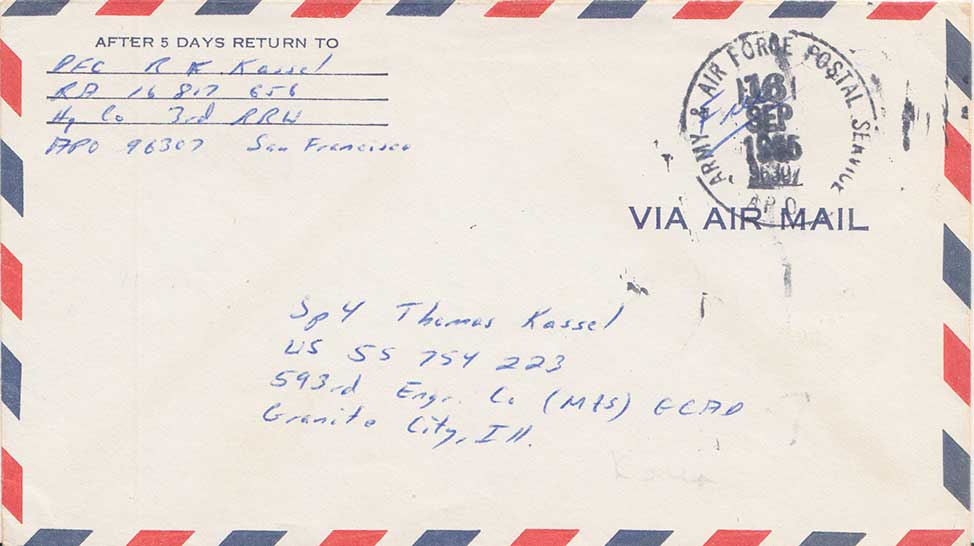 AFTER 5 DAYS RETURN TO
PFC R K Kassel
RA 16 817 656
Hq Co 3rd RRU
APO 96307 San Francisco
ARMY & AIR FORCE POSTAL SERVICE
16
SEP
1965
96307
APO
Free
VIA AIR MAIL
Sp4 Thomas Kassel
US 55 754 223
593rd Engr. Co (M&S) GCAD
Granite City, Ill.
Korea